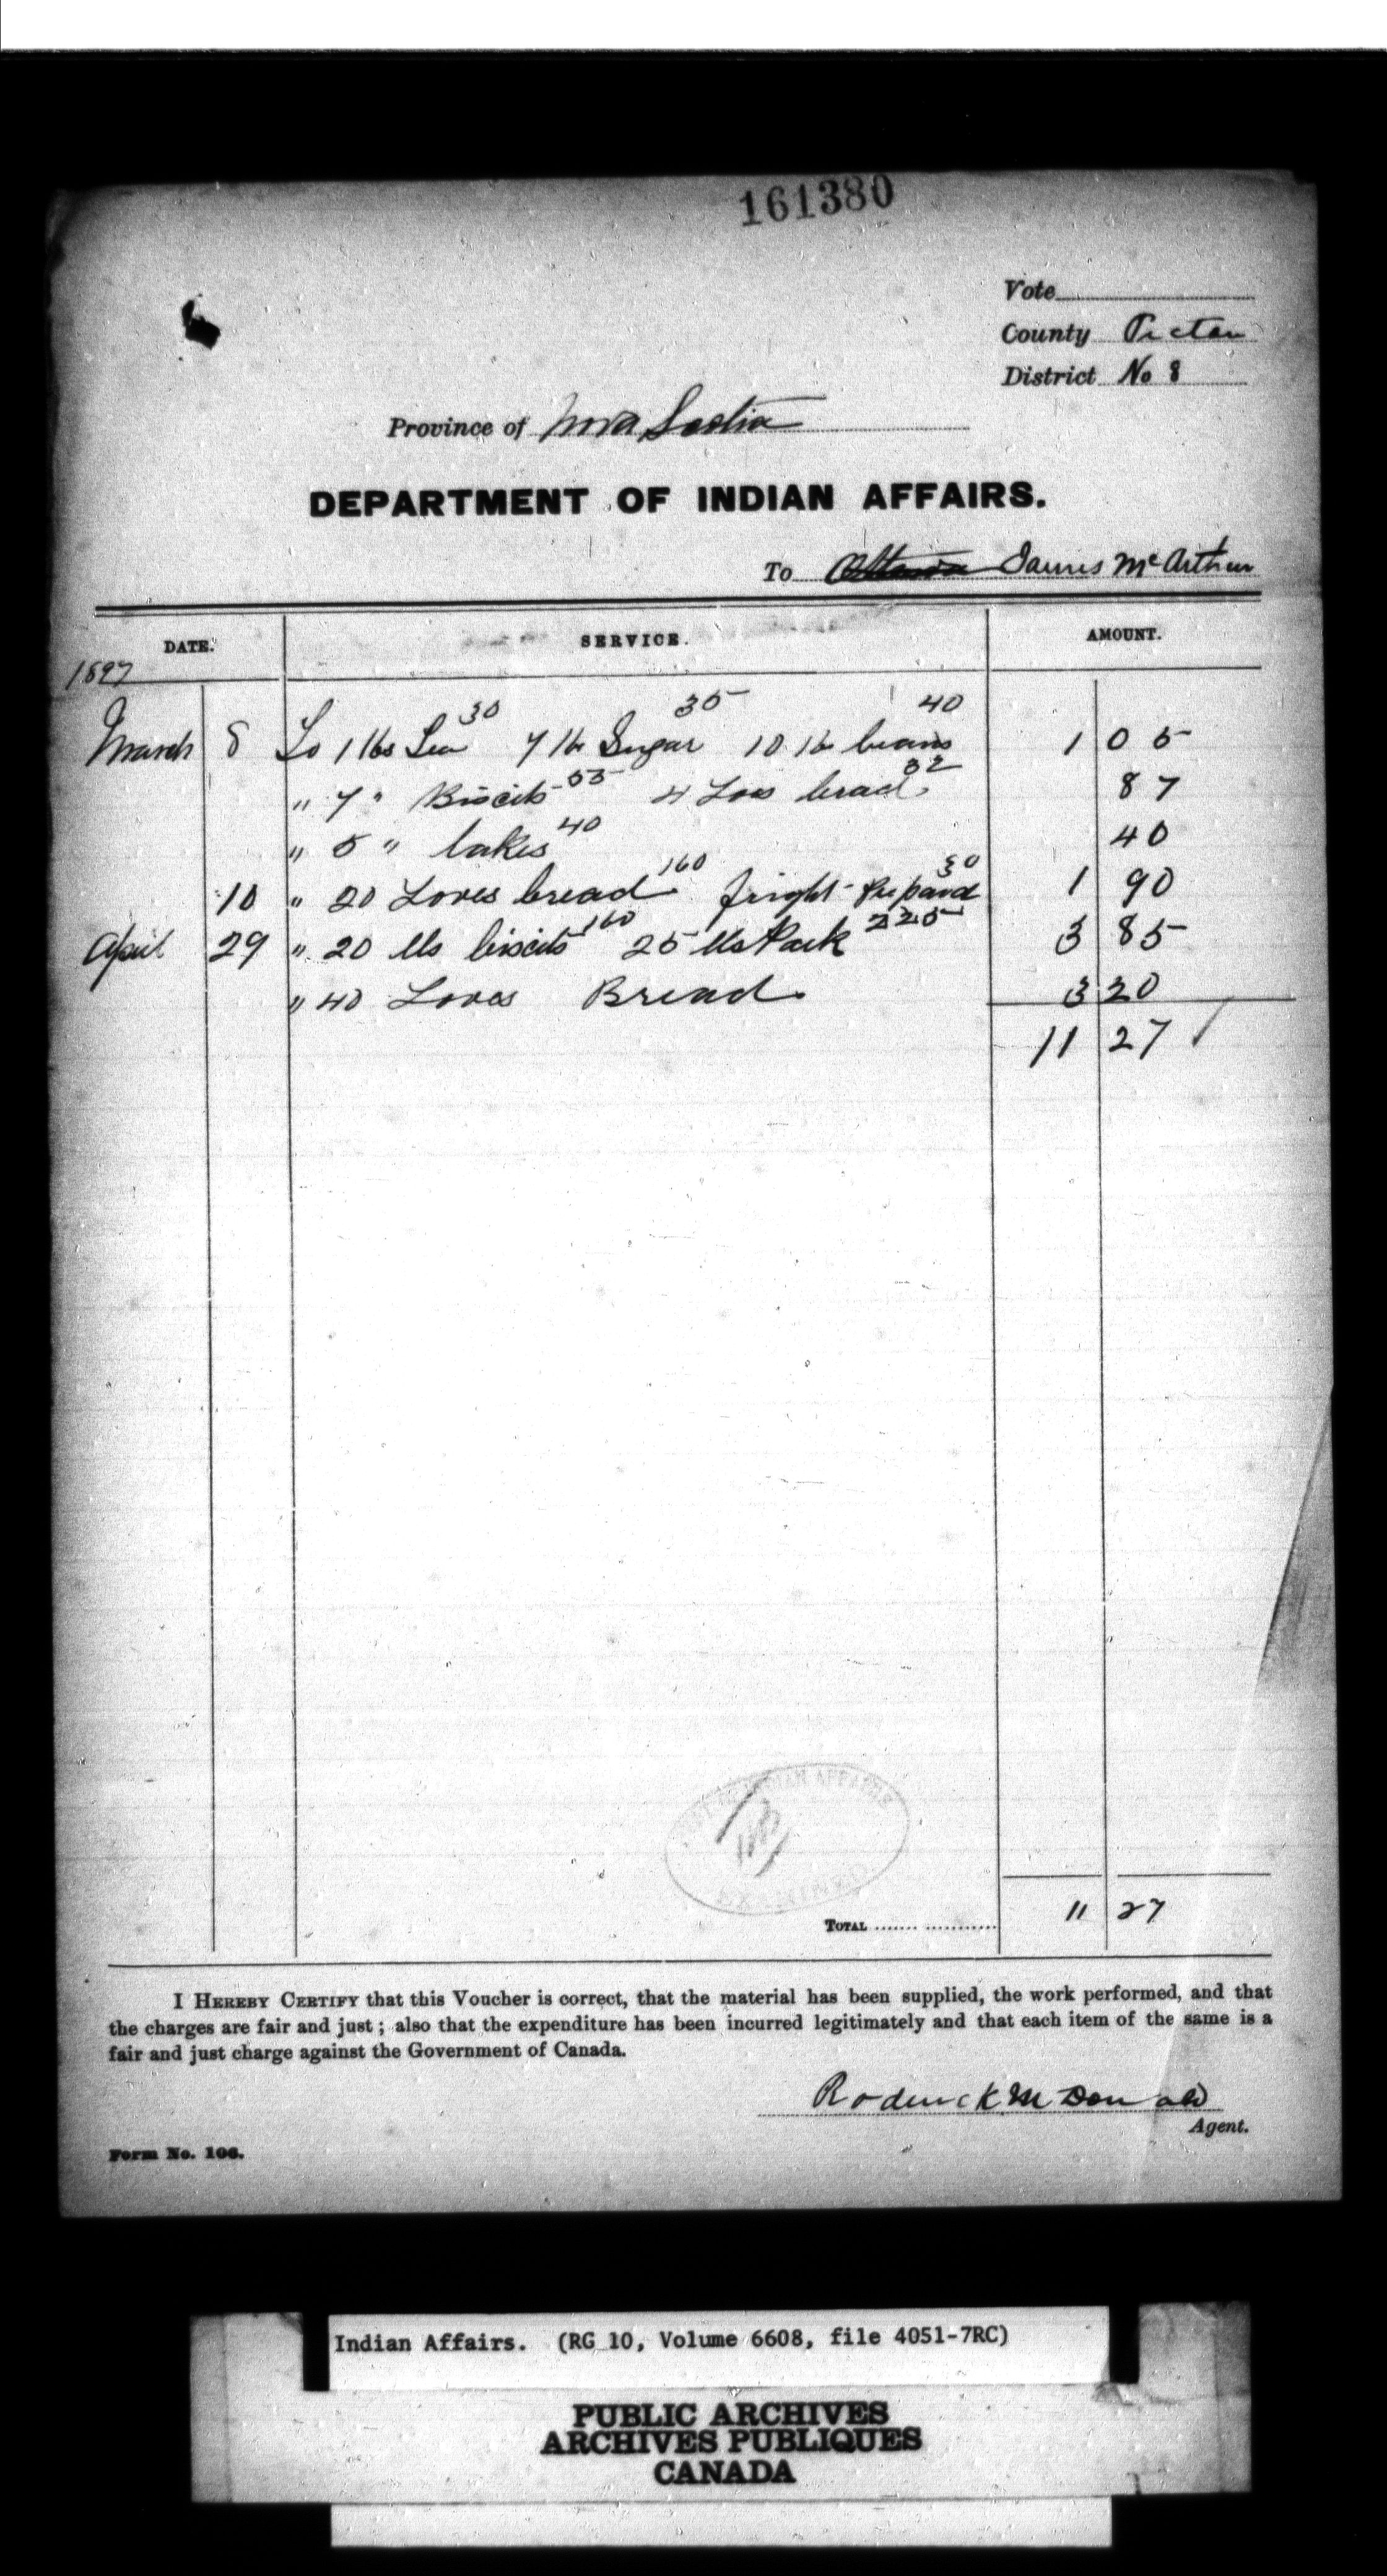 161380
Vote
County Pictou
District No 8
Province of Nova Scotia
DEPARTMENT OF INDIAN AFFAIRS.
To Ottawa James McArthur
DATE. SERVICE. AMOUNT.
1897
30 35 40
March 8 To 1 lbs Tea 7 lb Sugar 10 lb beans 1 05
" 7 " Biscits 55 4 Loves bread 32 87
" 5 " Cakes 40 40
10 " 20 Loves bread 160 fright prepaid 30 1 90
April 29 " 20 lbs biscits 160 25 lbs Pork 225 3 85
" 40 Loves Bread 3 20
11 27
DEPT OF INDIAN AFFAIRS
EXAMINED
TOTAL 11 27
I HEREBY CERTIFY that this Voucher is correct, that the material has been supplied, the work performed, and that
the charges are fair and just; also that the expenditure has been incurred legitimately and that each item of the same is a
fair and just charge against the Government of Canada.
Roderick McDonald
Agent.
Form No. 106.
Indian Affairs. (RG 10, Volume 6608, file 4051-7RC)
PUBLIC ARCHIVES
ARCHIVES PUBLIQUES
CANADA